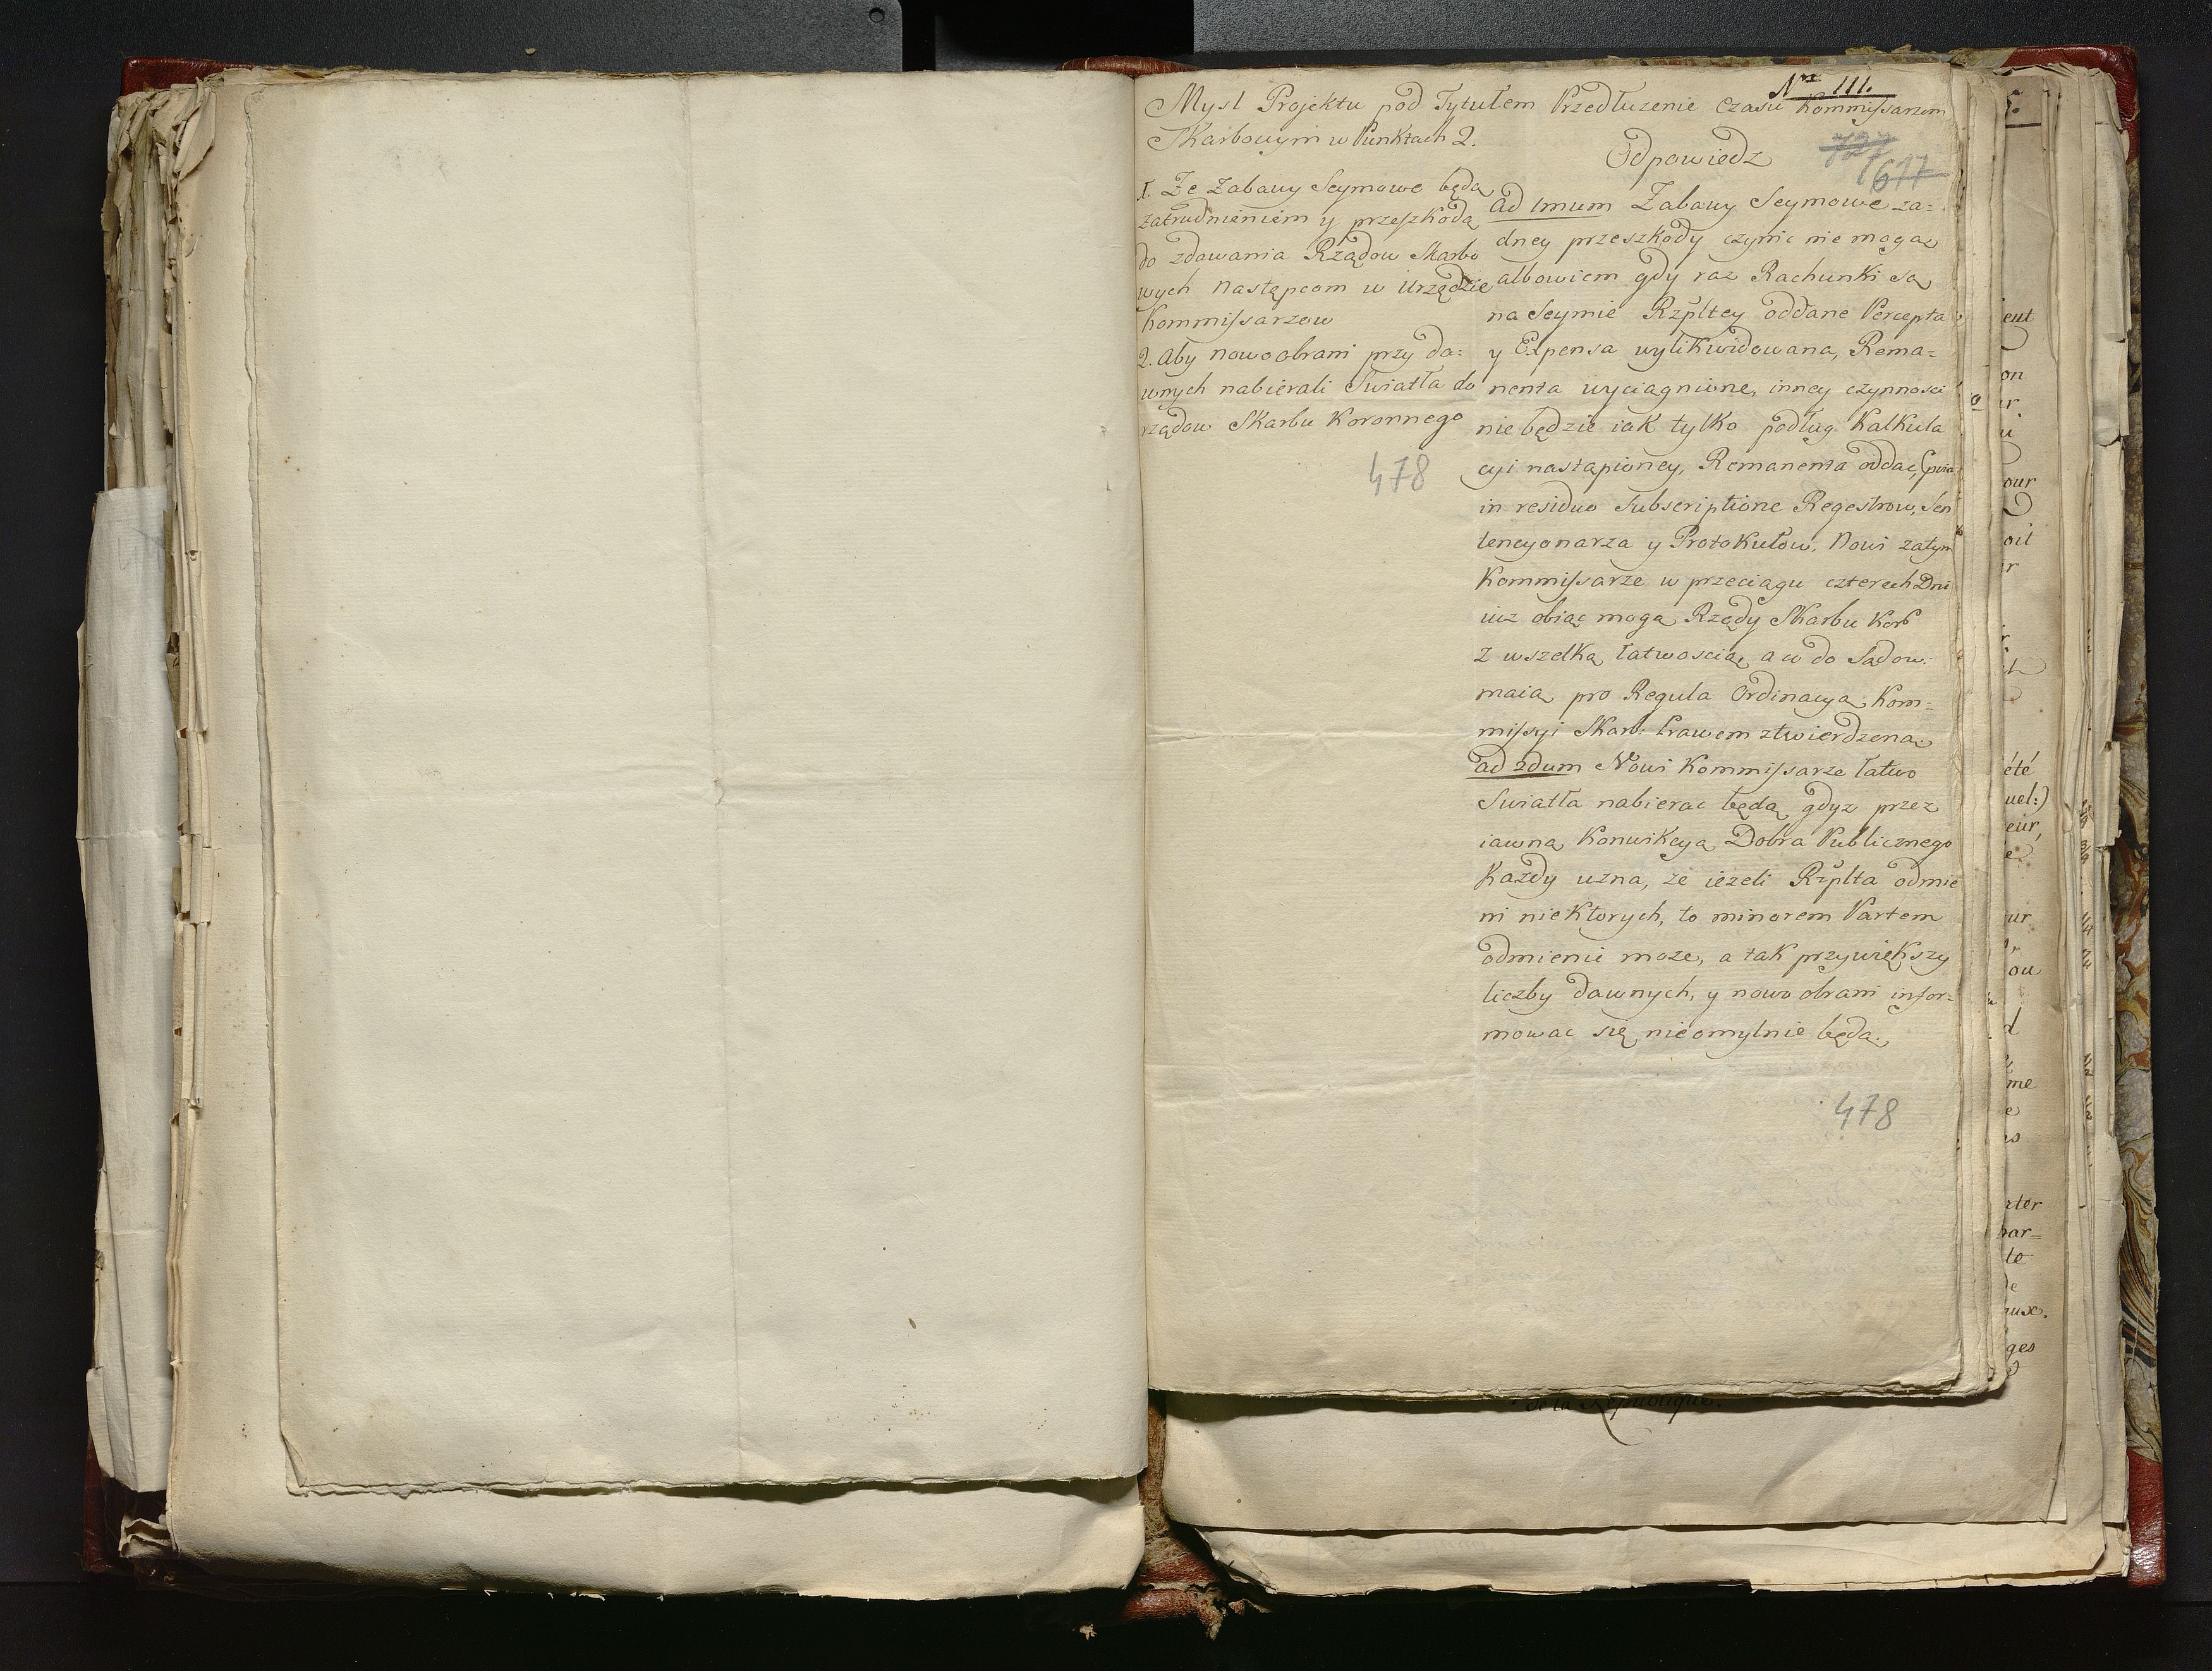 Nro 111.
Mysl Projektu pod Tytułem Przedłuzenie Czasu Kommissarzom
Skarbowym w Punktach 2.
727
677
1. Ze Zabawy Seymowe będą
zatrudnieniem y przeszkodą
do zdawania Rządow Skarbo
wych Następcom w Urzędzie
Kommissarzow
2. Aby nowo obrani przy da:
wnych nabierali Swiatła do
rządow Skarbu Koronnego
478
Odpowiedz
Ad 1mum Zabawy Seymowe za=
dney przeszkody czynic nie mogą
albowiem gdy raz Rachunki są
na Seymie Rzpltey oddane Percepta
y Expensa wylikwidowana, Rema=
nenta wyciągnione, inney czynnosci
nie będzie iak tylko podług Kalkula
cyi nastąpioney, Remanenta oddac,
in residuo Subscriptione Regestrow, Sen
tencyonarza y Protokułow. Nowi zatym
Kommissarze w przeciągu czterech Dni
iuz obiąc mogą Rządy Skarbu Kor
z wszelką łatwoscią, a co do Sądow:
maią pro Regula Ordinacyą Kom=
missyi Skarb: Prawem ztwierdzoną.
ad 2dum Nowi Kommissarze łatwo
Swiatła nabierac będą gdyz przez
iawną Konwikcyą Dobra Publicznego
Kazdy uzna, ze iezeli Rzplta odmie
ni niektorych, to minorem Partem
odmienic moze, a tak przy większy
liczby dawnych, y nowo obrani infor=
mowac się nieomylnie będą.
478
de la Republique.
eut
on
our
oit
été
uel:)
eur,
ou
me
ter
par=
te
de
aux.
ges